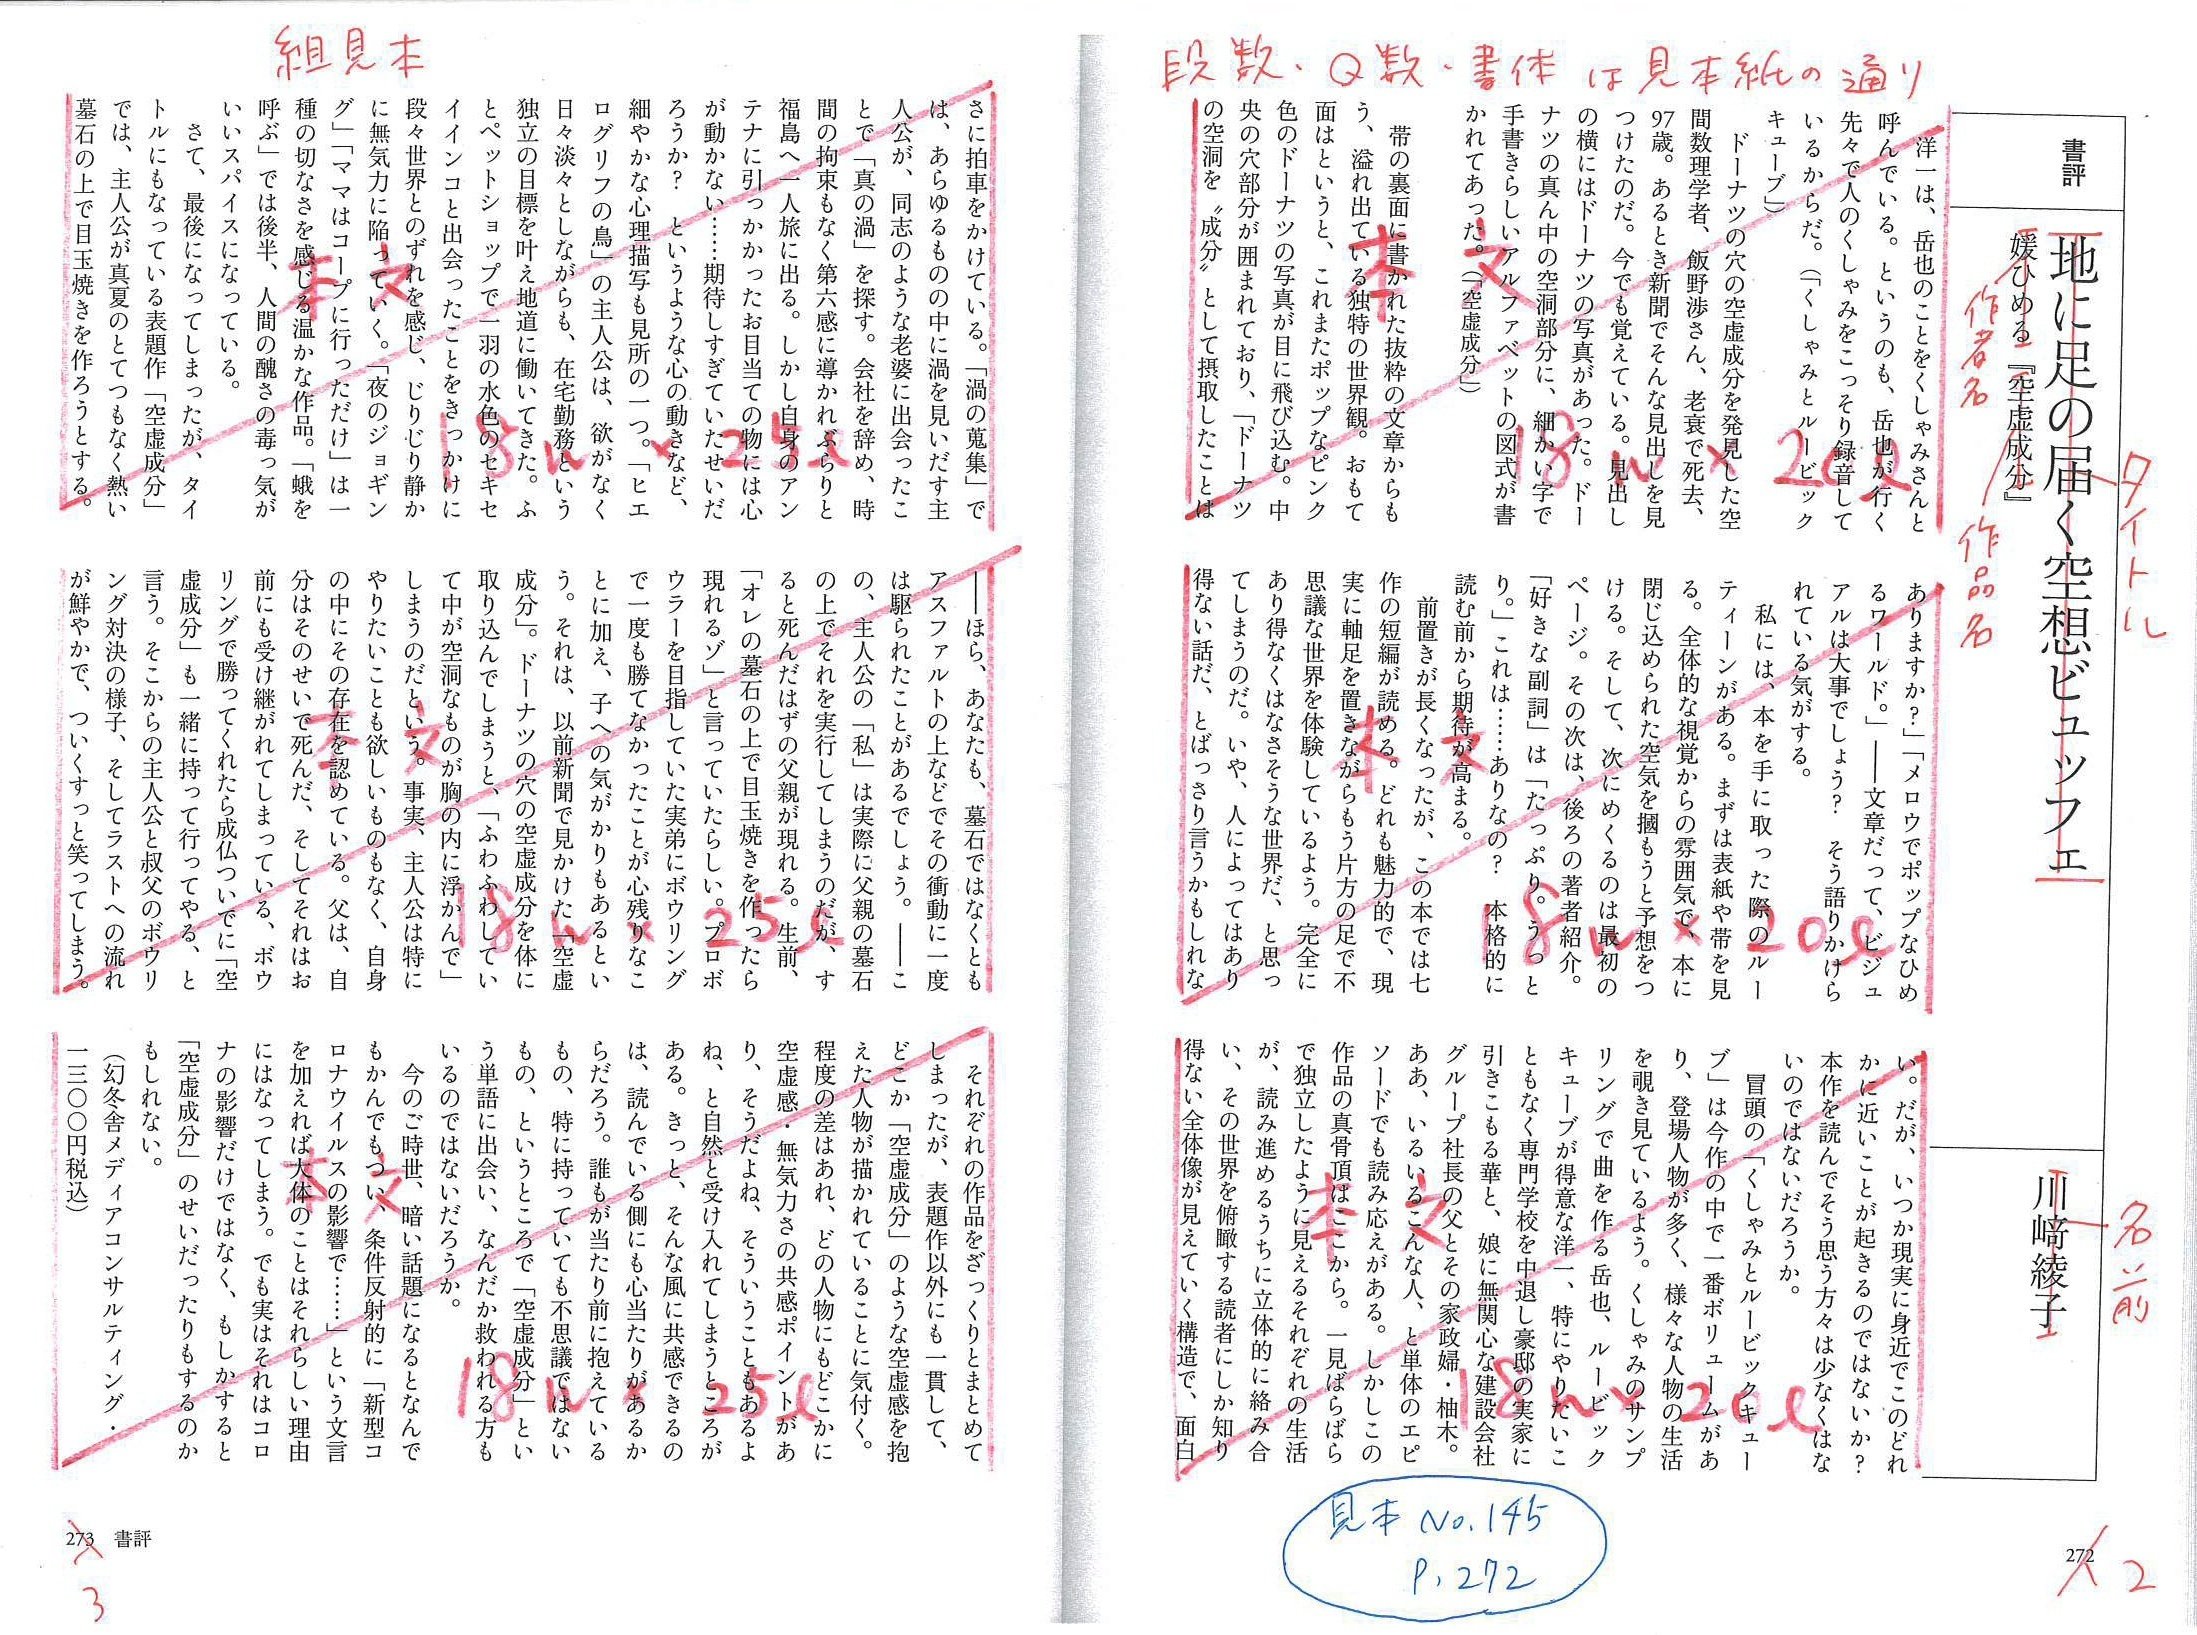 組見本
段数・Q数・書体は見本紙の通り
書評
地に足の届く空想ビュッフェ
タイトル
媛ひめる『空虚成分』
作者名/作品名
川﨑綾子
名前
洋一は、岳也のことをくしゃみさんと
呼んでいる。というのも、岳也が行く
先々で人のくしゃみをこっそり録音して
いるからだ。（「くしゃみとルービック
キューブ」）
ドーナツの穴の空虚成分を発見した空
間数理学者、飯野渉さん、老衰で死去、
97歳。あるとき新聞でそんな見出しを見
つけたのだ。今でも覚えている。見出し
の横にはドーナツの写真があった。ドー
ナツの真ん中の空洞部分に、細かい字で
手書きらしいアルファベットの図式が書
かれてあった。（「空虚成分」）
帯の裏面に書かれた抜粋の文章からも
う、溢れ出ている独特の世界観。おもて
面はというと、これまたポップなピンク
色のドーナツの写真が目に飛び込む。中
央の穴部分が囲まれており、「ドーナツ
の空洞を〝成分〟として摂取したことは
本文
18w×20l
ありますか？」「メロウでポップなひめ
るワールド。」――文章だって、ビジュ
アルは大事でしょう？　そう語りかけら
れている気がする。
私には、本を手に取った際のルー
ティーンがある。まずは表紙や帯を見
る。全体的な視覚からの雰囲気で、本に
閉じ込められた空気を摑もうと予想をつ
ける。そして、次にめくるのは最初の
ページ。その次は、後ろの著者紹介。
「好きな副詞」は「たっぷり。うっと
り。」これは……ありなの？　本格的に
読む前から期待が高まる。
前置きが長くなったが、この本では七
作の短編が読める。どれも魅力的で、現
実に軸足を置きながらもう片方の足で不
思議な世界を体験しているよう。完全に
あり得なくはなさそうな世界だ、と思っ
てしまうのだ。いや、人によってはあり
得ない話だ、とばっさり言うかもしれな
本文
18w×20l
い。だが、いつか現実に身近でこのどれ
かに近いことが起きるのではないか？
本作を読んでそう思う方々は少なくはな
いのではないだろうか。
冒頭の「くしゃみとルービックキュー
ブ」は今作の中で一番ボリュームがあ
り、登場人物が多く、様々な人物の生活
を覗き見ているよう。くしゃみのサンプ
リングで曲を作る岳也、ルービック
キューブが得意な洋一、特にやりたいこ
ともなく専門学校を中退し豪邸の実家に
引きこもる華と、娘に無関心な建設会社
グループ社長の父とその家政婦・柚木。
ああ、いるいるこんな人、と単体のエピ
ソードでも読み応えがある。しかしこの
作品の真骨頂はここから。一見ばらばら
で独立したように見えるそれぞれの生活
が、読み進めるうちに立体的に絡み合
い、その世界を俯瞰する読者にしか知り
得ない全体像が見えていく構造で、面白
本文
18w×20l
見本 No.145
P.272
272
2
さに拍車をかけている。「渦の蒐集」で
は、あらゆるものの中に渦を見いだす主
人公が、同志のような老婆に出会ったこ
とで「真の渦」を探す。会社を辞め、時
間の拘束もなく第六感に導かれぶらりと
福島へ一人旅に出る。しかし自身のアン
テナに引っかかったお目当ての物には心
が動かない……期待しすぎていたせいだ
ろうか？　というような心の動きなど、
細やかな心理描写も見所の一つ。「ヒエ
ログリフの鳥」の主人公は、欲がなく
日々淡々としながらも、在宅勤務という
独立の目標を叶え地道に働いてきた。ふ
とペットショップで一羽の水色のセキセ
イインコと出会ったことをきっかけに
段々世界とのずれを感じ、じりじり静か
に無気力に陥っていく。「夜のジョギン
グ」「ママはコープに行っただけ」は一
種の切なさを感じる温かな作品。「蛾を
呼ぶ」では後半、人間の醜さの毒っ気が
いいスパイスになっている。
さて、最後になってしまったが、タイ
トルにもなっている表題作「空虚成分」
では、主人公が真夏のとてつもなく熱い
墓石の上で目玉焼きを作ろうとする。
本文
18w×25l
――ほら、あなたも、墓石ではなくとも
アスファルトの上などでその衝動に一度
は駆られたことがあるでしょう。――こ
の、主人公の「私」は実際に父親の墓石
の上でそれを実行してしまうのだが、す
ると死んだはずの父親が現れる。生前、
「オレの墓石の上で目玉焼きを作ったら
現れるゾ」と言っていたらしい。プロボ
ウラーを目指していた実弟にボウリング
で一度も勝てなかったことが心残りなこ
とに加え、子への気がかりもあるとい
う。それは、以前新聞で見かけた「空虚
成分」。ドーナツの穴の空虚成分を体に
取り込んでしまうと、「ふわふわしてい
て中が空洞なものが胸の内に浮かんで」
しまうのだという。事実、主人公は特に
やりたいことも欲しいものもなく、自身
の中にその存在を認めている。父は、自
分はそのせいで死んだ、そしてそれはお
前にも受け継がれてしまっている、ボウ
リングで勝ってくれたら成仏ついでに「空
虚成分」も一緒に持って行ってやる、と
言う。そこからの主人公と叔父のボウリ
ング対決の様子、そしてラストへの流れ
が鮮やかで、ついくすっと笑ってしまう。
本文
18w×25l
それぞれの作品をざっくりとまとめて
しまったが、表題作以外にも一貫して、
どこか「空虚成分」のような空虚感を抱
えた人物が描かれていることに気付く。
程度の差はあれ、どの人物にもどこかに
空虚感・無気力さの共感ポイントがあ
り、そうだよね、そういうこともあるよ
ね、と自然と受け入れてしまうところが
ある。きっと、そんな風に共感できるの
は、読んでいる側にも心当たりがあるか
らだろう。誰もが当たり前に抱えている
もの、特に持っていても不思議ではない
もの、というところで「空虚成分」とい
う単語に出会い、なんだか救われる方も
いるのではないだろうか。
今のご時世、暗い話題になるとなんで
もかんでもつい、条件反射的に「新型コ
ロナウイルスの影響で……」という文言
を加えれば大体のことはそれらしい理由
にはなってしまう。でも実はそれはコロ
ナの影響だけではなく、もしかすると
「空虚成分」のせいだったりもするのか
もしれない。
（幻冬舎メディアコンサルティング・
一三〇〇円税込）
本文
18w×25l
273　書評
3